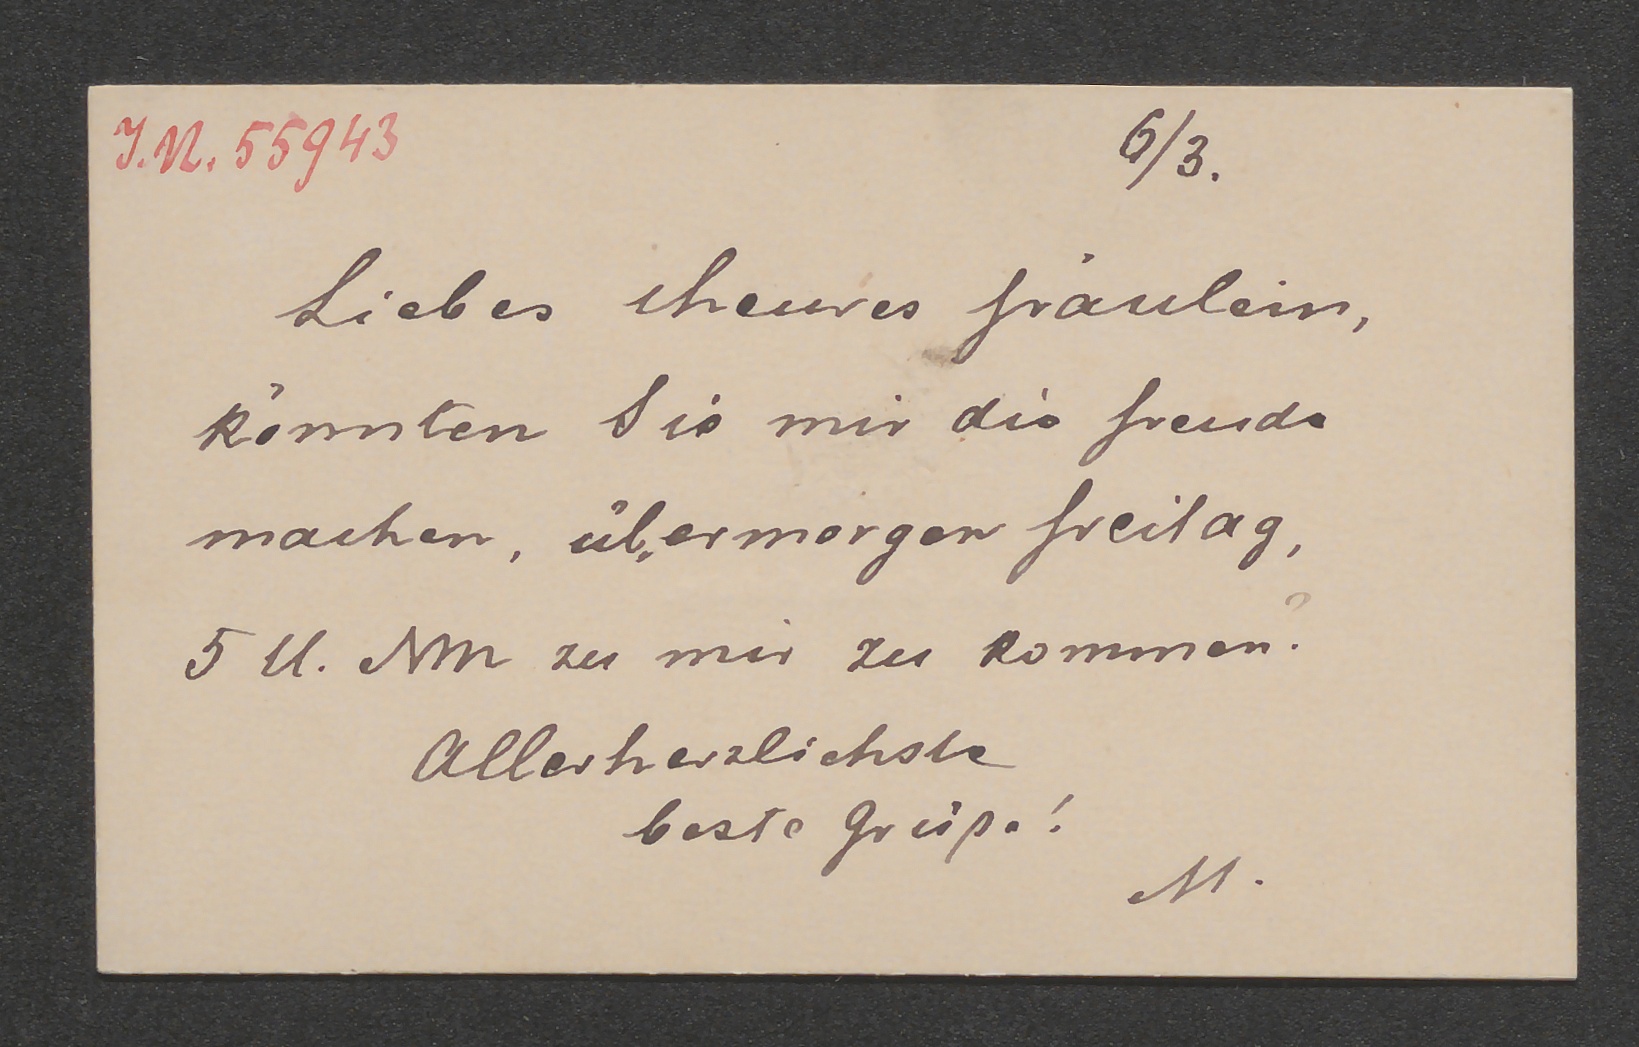 I.N. 55943
6/3.
Liebes theures Fräulein,
könnten Sie mir die Freude
machen, übermorgen Freitag,
5 U. NM zu mir zu kommen?
Allerherzlichste
beste Grüße!
M.